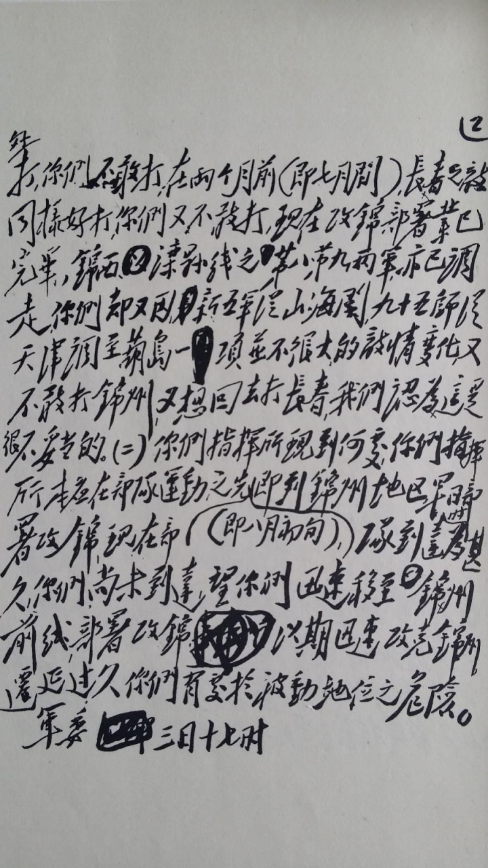 口
能
打,你们不敢打,在两个月前(即七月間),長春之敵
同樣好打,你們又不敢打,現在攻錦部署業已
完畢,錦西灤縣线之第八第九两軍亦已調
走,你們却又因新五軍從山海関九十五師從
天津調至葫島一項並不很大的敵情变化又
不敢打錦州,又想回去打長春,我們認為這是
很不妥当的。(二)你們指揮所現到何處,你們指揮
所本应在部隊運動之先(即八月初旬)即到錦州地区早日部
署攻錦,現在部隊到達為甚
久,你們尚未到達,望你們迅速移至錦州
前线,部署攻錦,以期迅速攻克錦州,
遷延过久,你們有處於被動地位之危險。
軍委 三日十七时